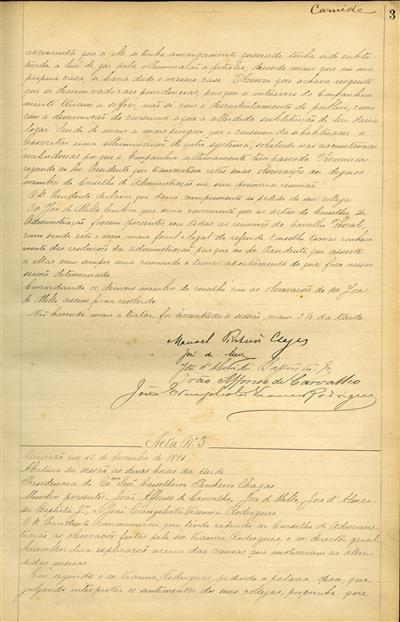 Carnide
3
accrescenta que a M se tinha amargamente queixado, tinha sido substi-
tuida a luz de gaz pela illuminação a petroleo, dizendo mais que em sua
propria casa, se havia dado o mesmo caso. que achava urgente
que se dessem radicaes providencias, porque os interesses da Companhia
muito teriam a soffrer, não só com o descontentamento do publico, como
com a diminuição do consumo a que a alludida substituição de luz dava
logar. Sendo de mais a mais perigoso que o consumidor se habituasse a
aproveitar uma illuminação de outro systema, sobretudo nas circumstancias
melindrosas por que a Companhia ultimamente tem passado. Terminou
rogando ao Snr. Presidente que transmittisse estas suas observações aos dignos
membros do Conselho de Administração na sua primeira reunião.
O Snr. Presidente declarou que daria cumprimento ao pedido do seu collega.
O Snr. José de Mello lembrou que seria conveniente que as actas do Conselho de
Administração fossem presentes em todas as reuniões do Conselho Fiscal,
como sendo este o meio mais facil e legal do referido Conselho tomar conheci-
mento das resoluções da administração, para que ao Snr. Presidente que assiste
a ellas nem sempre seria commodo o tomar apontamentos do que fosse nessas
sessões determinado.
Concordando os demais membros do conselho com as observações do Snr. José
de Mello, assim ficou resolvido.
Não havendo mais a tratar, foi levantada a sessão, eram 3 ½ da tarde.
Manoel Pinheiro Chagas
José de Mello
José d'Almeida Baptista Jr.
João Affonso de Carvalho
João Evangelista Vianna Rodrigues
Acta Nº 3
Reunião em 15 de dezembro de 1891
Abertura da sessão ás duas horas da tarde
Presidencia do Exmo Snr. Conselheiro Pinheiro Chagas
Membros presentes, João Affonso de Carvalho, José de Mello, José d'Almei-
da Baptista Jr., e João Evangelista Vianna Rodrigues
O Snr. Presidente communicou que tendo referido ao Conselho de Adminis-
tração as observações feitas pelo snr. Vianna Rodrigues e o director geral
Conselheiro dera explicações acerca das causas que motivaram as allu-
didas queixas.
Em seguida o snr. Vianna Rodrigues, pedindo a palavra, disse, que
julgando interpretar os sentimentos dos seus collegas, propunha que